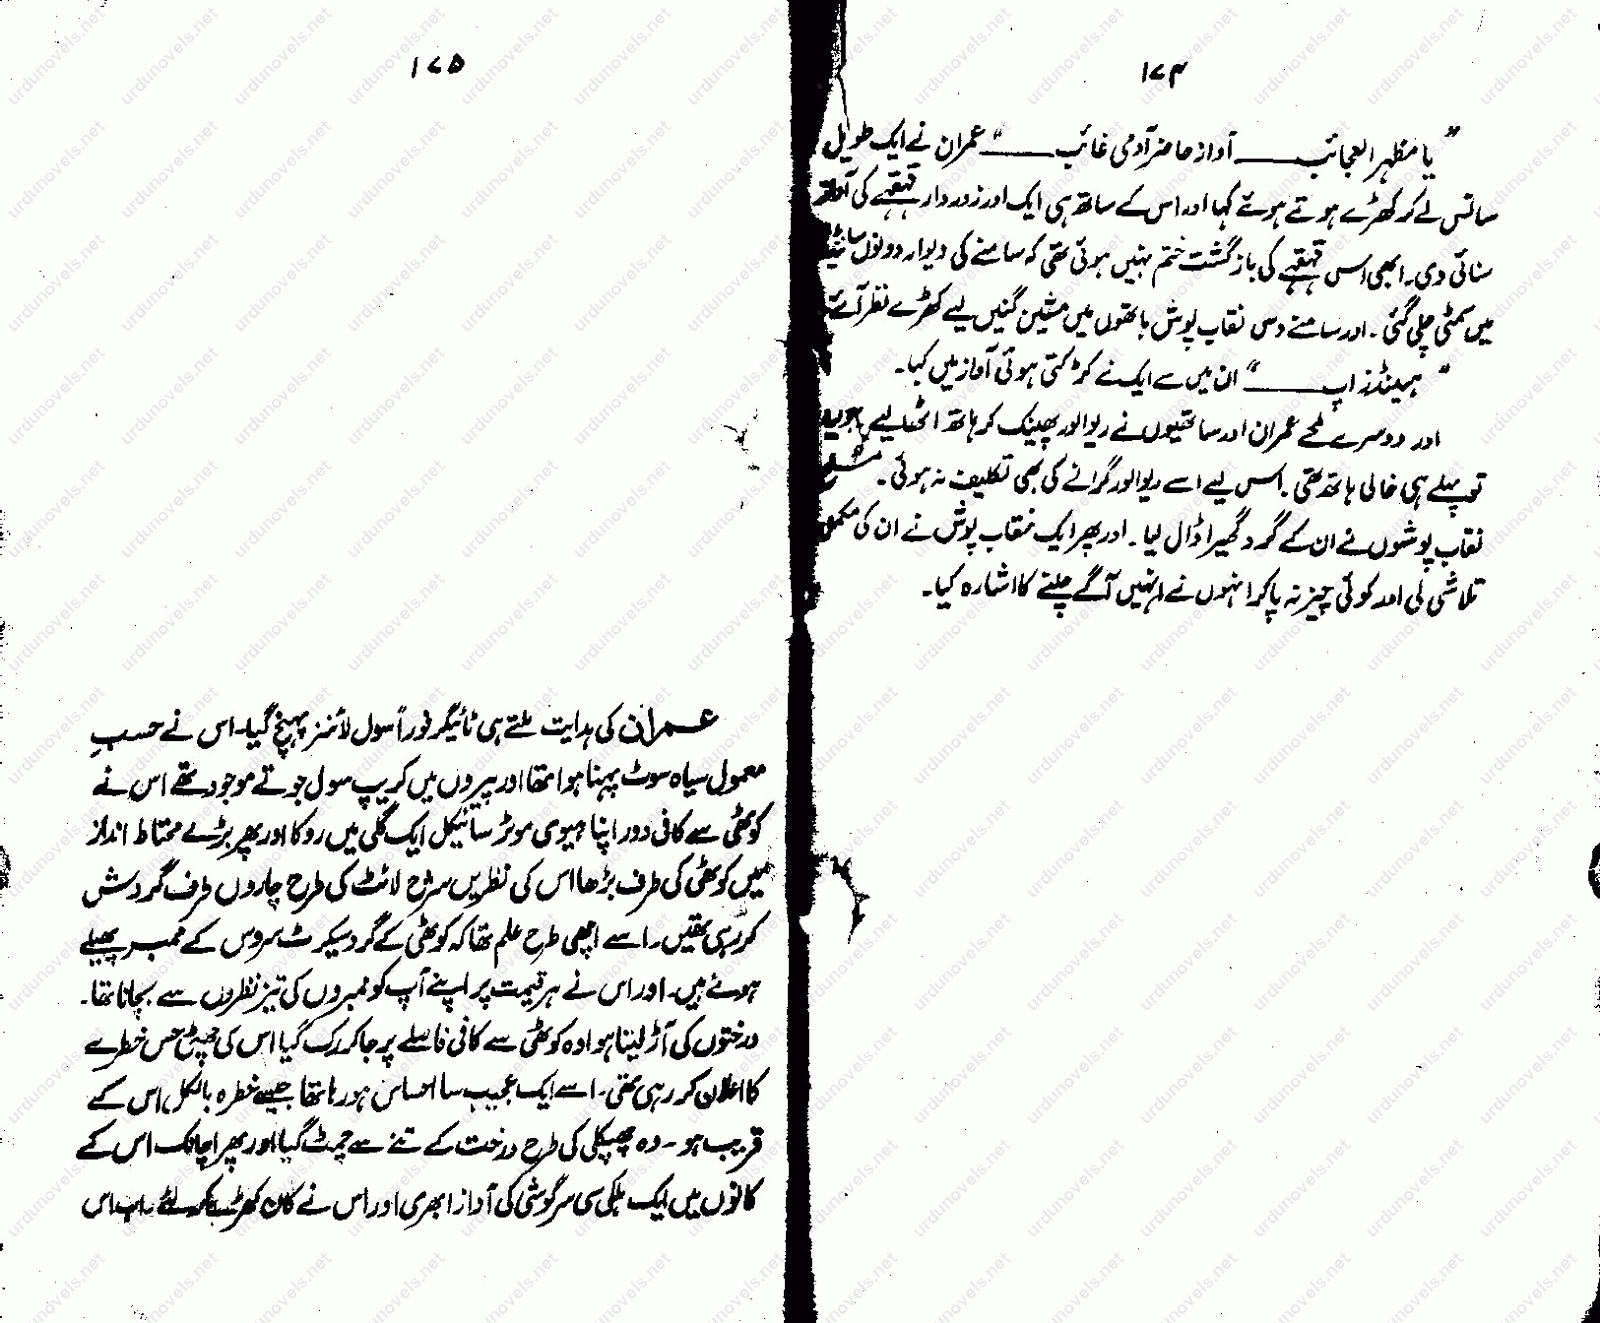 ۱۷۴
"یا مظہر العجائب ــــــ آواز حاضر آدمی غائب ــــــ" عمران نے ایک طویل
سانس لے کر کھڑے ہوتے ہوئے کہا اور اس کے ساتھ ہی ایک اور زوردار قہقہے کی آواز
سنائی دی۔ ابھی اس قہقہے کی بازگشت ختم نہیں ہوئی تھی کہ سامنے کی دیوار دونوں سائیڈ
میں سمٹی چلی گئی۔ اور سامنے دس نقاب پوش ہاتھوں میں مشین گنیں لیے کھڑے نظر آئے۔
"ہینڈز اپ ــــــ" ان میں سے ایک نے کڑکتی ہوئی آواز میں کہا۔
اور دوسرے لمحے عمران اور ساتھیوں نے ریوالور پھینک کر ہاتھ اٹھا لیے
تو پہلے ہی خالی ہاتھ تھی۔ اس لیے اسے ریوالور گرانے کی بھی تکلیف نہ ہوئی۔
نقاب پوشوں نے ان کے گرد گھیرا ڈال لیا۔ اور پھر ایک نقاب پوش نے ان کی مکمل
تلاشی لی اور کوئی چیز نہ پا کر انہوں نے انہیں آگے چلنے کا اشارہ کیا۔
۱۷۵
عمران کی ہدایت ملتے ہی ٹائیگر فوراً سول لائنز پہنچ گیا۔ اس نے حسبِ
معمول سیاہ سوٹ پہنا ہوا تھا اور پیروں میں کریپ سول جوتے موجود تھے اس نے
کوٹھی سے کافی دور اپنا ہیوی موٹر سائیکل ایک گلی میں روکا اور پھر بڑے محتاط انداز
میں کوٹھی کی طرف بڑھا اس کی نظریں سرچ لائٹ کی طرح چاروں طرف گردش
کر رہی تھیں۔ اسے اچھی طرح علم تھا کہ کوٹھی کے گرد سیکرٹ سروس کے ممبر پھیلے
ہوئے ہیں۔ اور اس نے ہر قیمت پر اپنے آپ کو ممبروں کی تیز نظروں سے بچانا تھا۔
درختوں کی آڑ لیتا ہوا وہ کوٹھی سے کافی فاصلے پر جا کر رک گیا اس کی چھٹی حس خطرے
کا اعلان کر رہی تھی۔ اسے ایک عجیب سا احساس ہو رہا تھا جیسے خطرہ بالکل اس کے
قریب ہو۔ وہ چھپکلی کی طرح درخت کے تنے سے چمٹ گیا اور پھر اچانک اس کے
کانوں میں ایک ہلکی سی سرگوشی کی آواز ابھری اور اس نے کان کھڑے کر لئے۔ اب اس